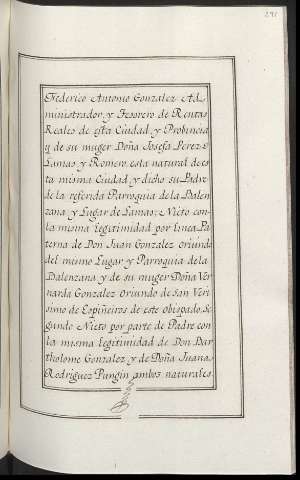 291
Federico Antonio Gonzalez Ad,
ministrador, y Tesorero de Rentas
Reales de esta Ciudad, y Probincia
y de su muger Doña Josefa Perez
Lamas y Romero, esta natural de es
ta misma Ciudad, y dicho su Padre
de la referida Parroquia de la Dalen
zana y Lugar de Lamas; Nieto con
la misma legitimidad por linea Pa
terna de Don Juan Gonzalez oriundo
del mismo Lugar y Parroquia de la
Dalenzana y de su muger Doña Ver
narda Gonzalez oriundo de San Veri
simo de Espiñeiros de este obispado, Se
gundo Nieto por parte de Padre con
la misma legitimidad de Don Bar
tholome Gonzalez y de Doña Juana
Rodriguez Pungin ambos naturales